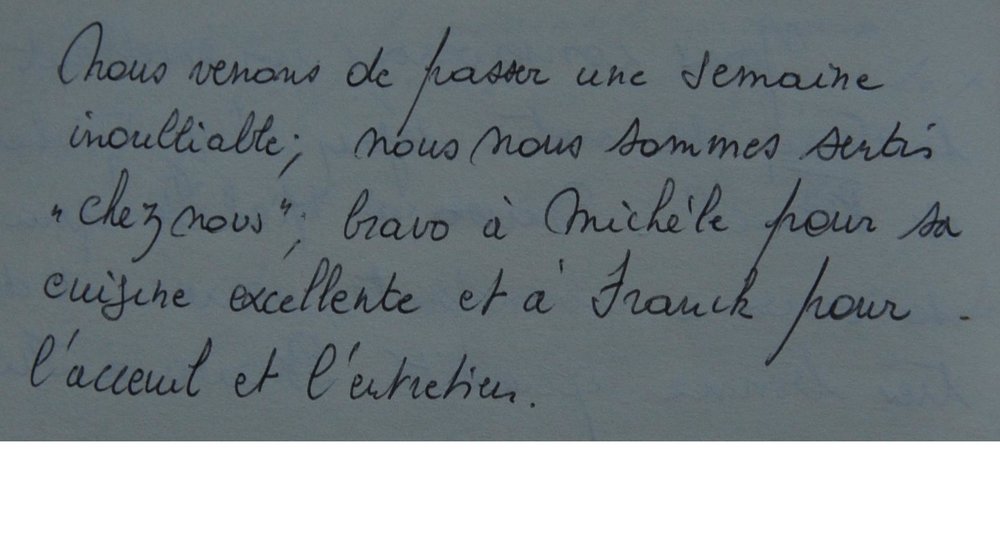 Nous venons de passer une semaine
inoubliable; nous nous sommes sentis
"chez nous"; bravo à Michèle pour sa
cuisine excellente et à Franck pour
l'acceuil et l'entretien.